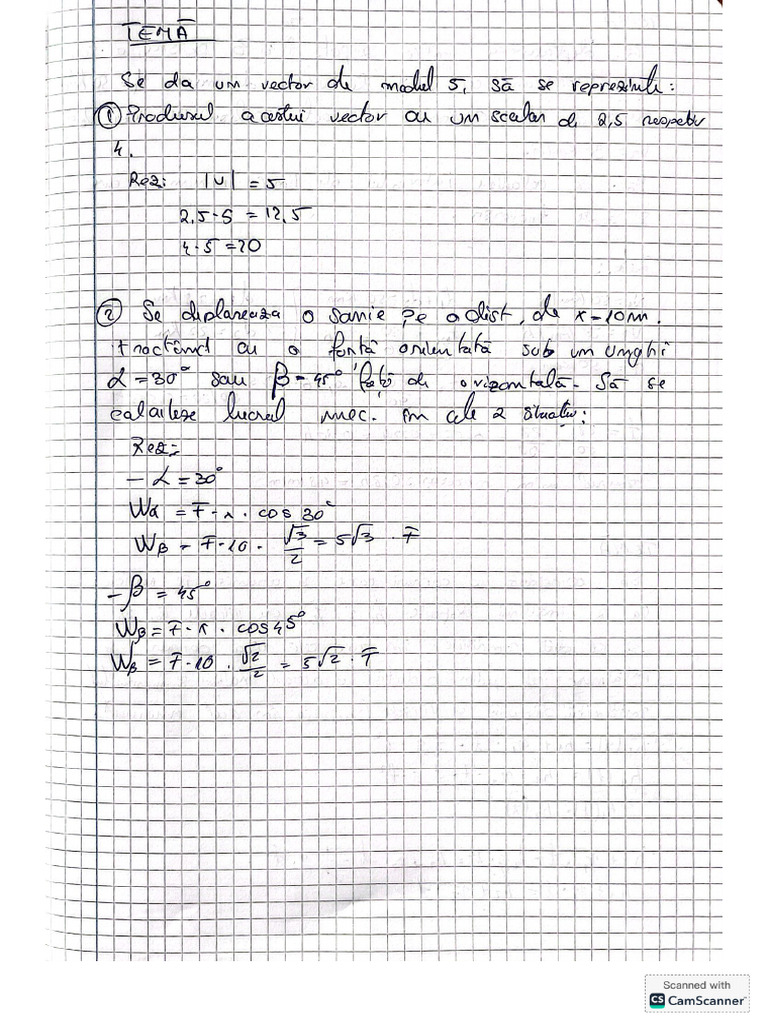 TEMĂ
Se da um vector de modul 5, să se reprezinte:
① Produsul acestui vector cu un scalar de 2,5 respectiv
4.
Rez: |v| = 5
2,5 · 5 = 12,5
4 · 5 = 20
② Se deplaseaza o sanie pe o dist, de x = 10m.
tractând cu o forță orientată sub un unghi
α = 30° sau β = 45° față de orizontală. Să se
calculeze lucrul mec. în cele 2 situații:
Rez:
- α = 30°
Wα = F · x · cos 30°
Wβ = F · 10 · √3/2 = 5√3 · F
- β = 45°
Wβ = F · x · cos 45°
Wβ = F · 10 · √2/2 = 5√2 · F
Scanned with
CS CamScanner